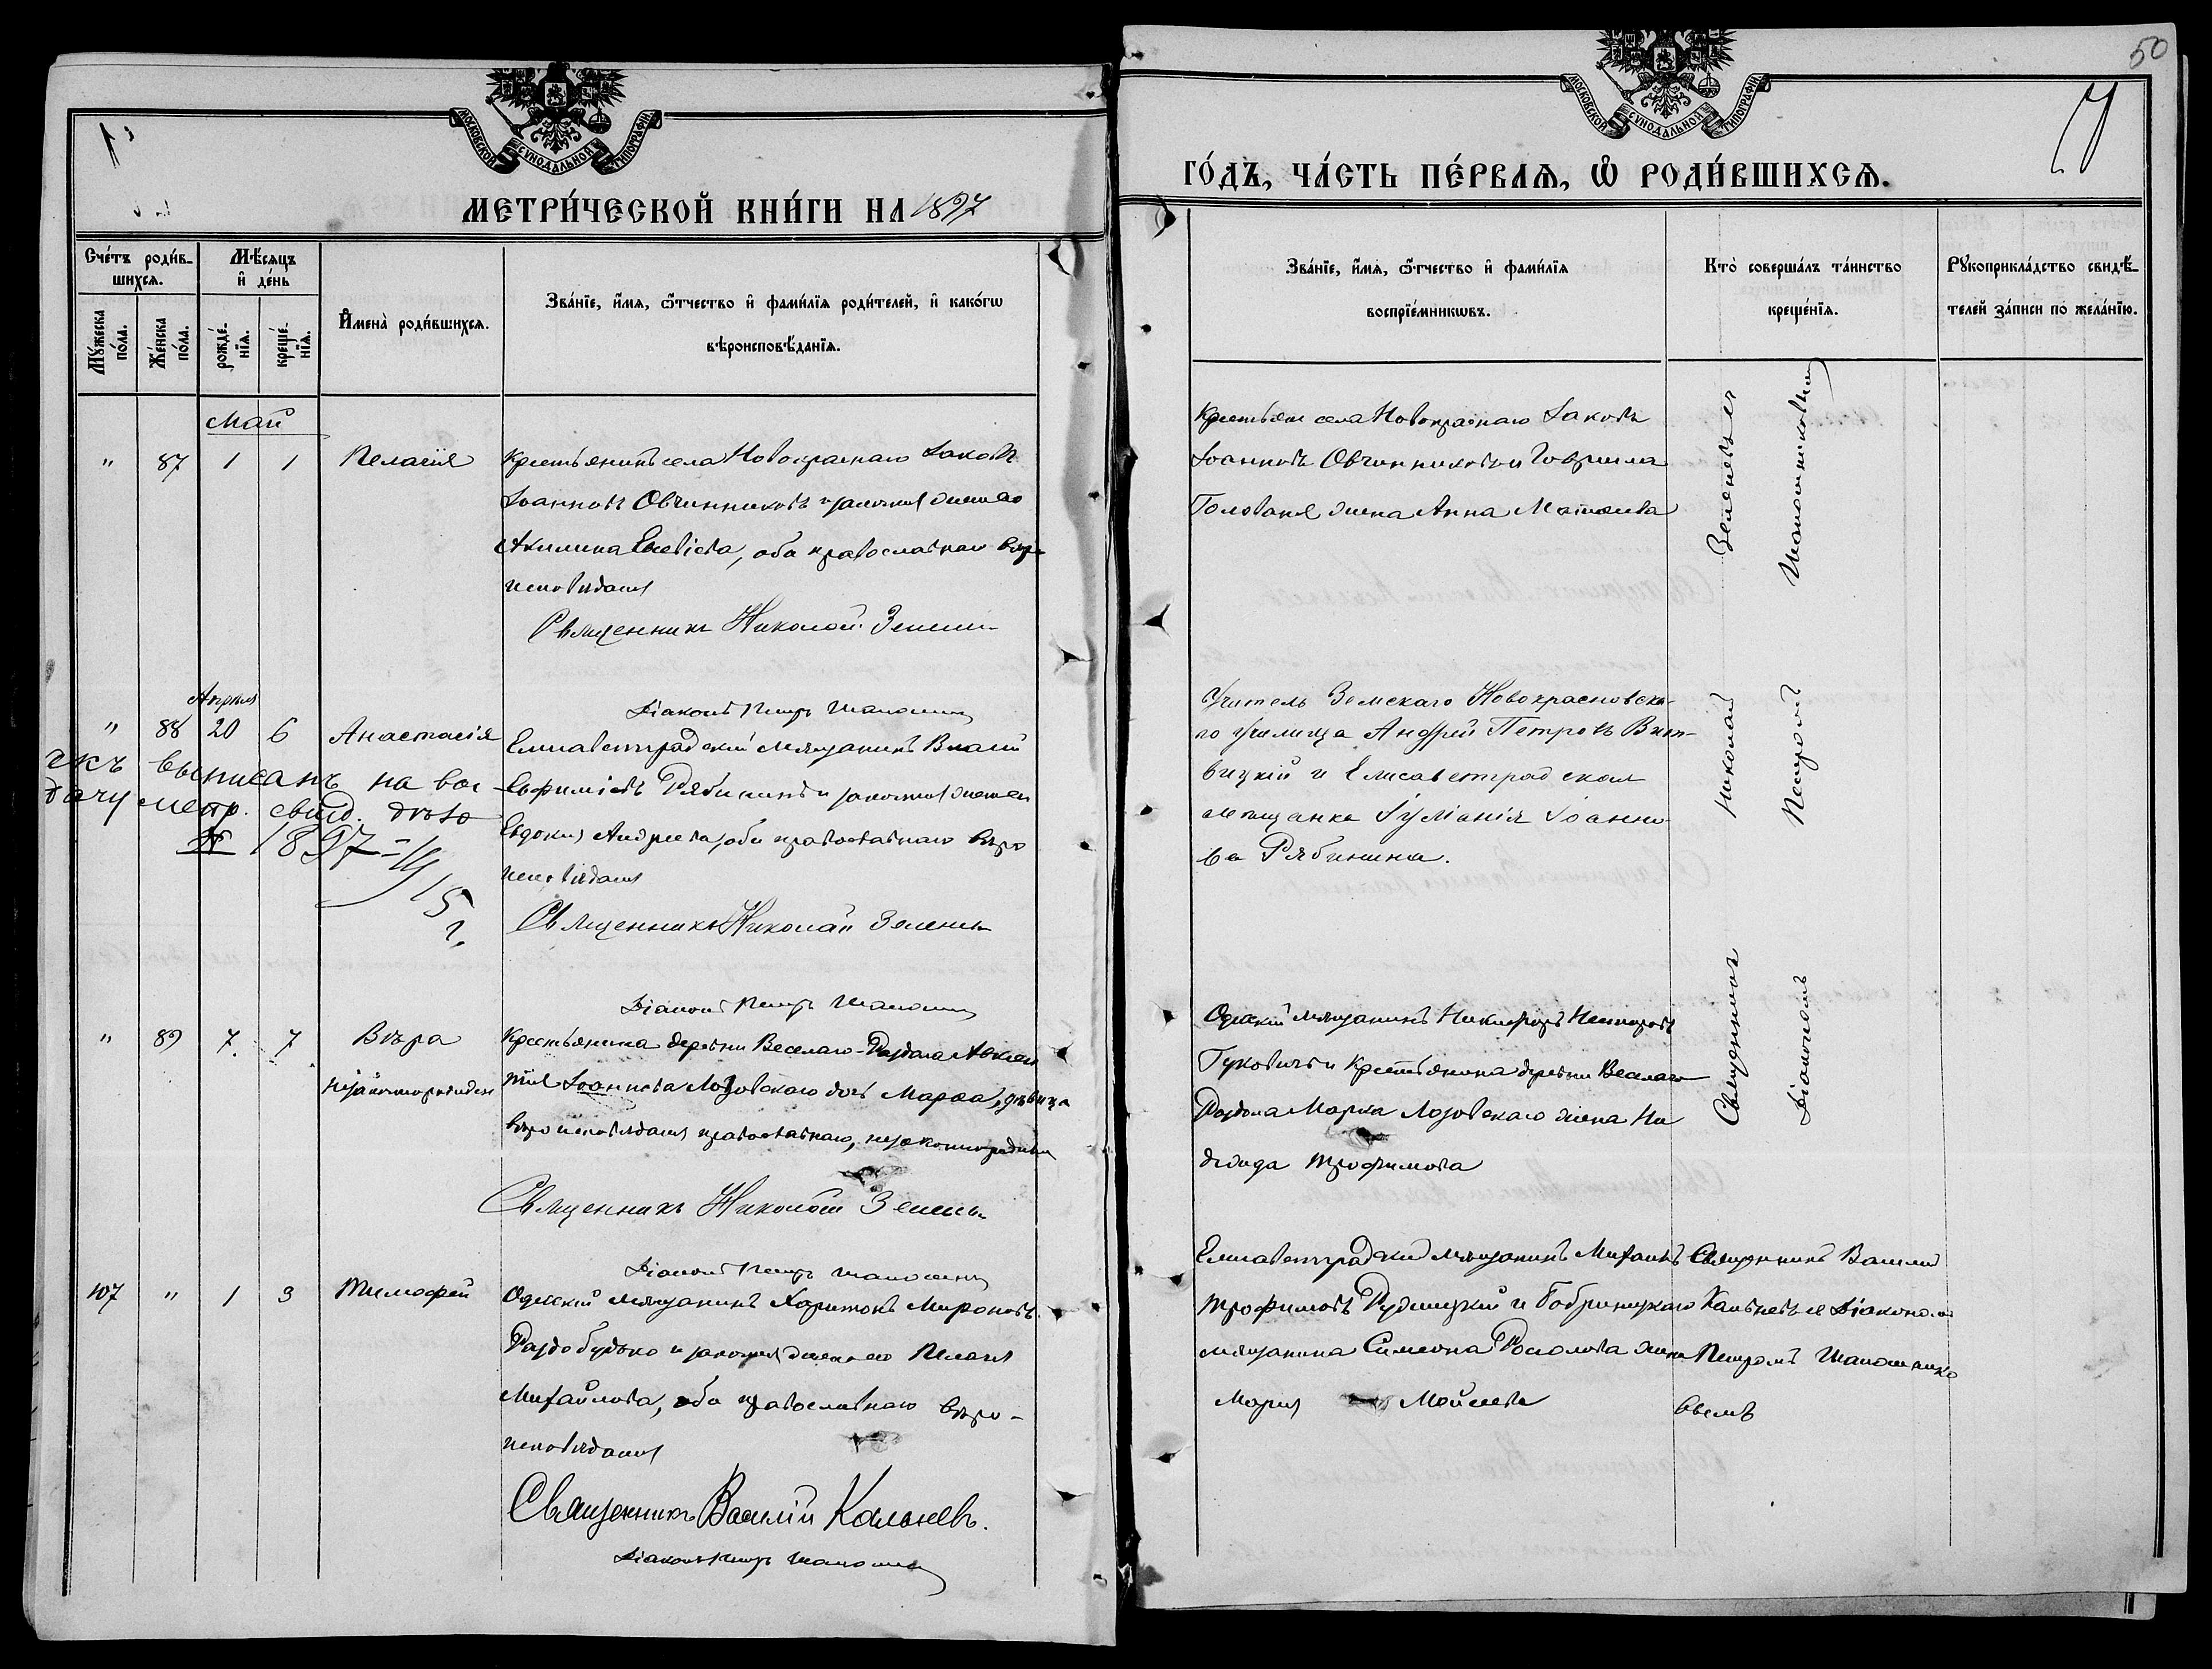 МОСКОВСКОЙ СУНОДАЛЬНОЙ ТИПОГРАФІИ
МЕТРИ́ЧЕСКОЙ КНИ́ГИ НА 1897
Сче́тъ роди́в-
шихся.
Мѣ́сяцъ
и҆ де́нь
Му́жеска по́ла.
Же́нска по́ла.
рожде́-
нїя.
креще́-
нїя.
И҆мена̀ роди́вшихся.
Зва́нїе, и҆́мя, ѻ҆́тчество и҆ фами́лїя роди́телей, и҆ како́гѡ
вѣроисповѣ́данїя.
Май
" 87 1 1 Пелагія
Крестьянинъ села Новокраснаго Іаковъ
Іоанновъ Овчинниковъ и законная жена его
Акилина Евсевіева, оба православнаго вѣро-
исповѣданія
Священникъ Николай
Діаконъ Петръ
Апрѣля
" 88 20 6 Анастасія
Елисаветградскій мѣщанинъ Власій
Евфиміевъ Рябининъ и законная жена его
Евдокія Андреева, оба православнаго вѣро
исповѣданія
выписанъ на вы-
дачу метр. свид.
1897
Священникъ Николай
Діаконъ Петръ
" 89 7 7 Вѣра
незаконнорожден
Крестьянина деревни Веселаго-Раздола
Іоаннова Лозовскаго дочь Марѳа, дѣвица
вѣроисповѣданія православнаго, незаконнорожден
Священникъ Николай
Діаконъ Петръ
107 " 1 3 Тимофей
Одесскій мѣщанинъ Харитонъ Мироновъ
Раздобудько и законная жена его Пелагія
Михайлова, оба православнаго вѣро-
исповѣданія
Священникъ Василій Кальневъ.
Діаконъ Петръ
50
МОСКОВСКОЙ СУНОДАЛЬНОЙ ТИПОГРАФІИ
ГО́ДЪ, ЧА́СТЬ ПЕ́РВАЯ, Ѡ҆ РОДИ́ВШИХСЯ.
Зва́нїе, и҆́мя, ѻ҆́тчество и҆ фами́лїя
воспрїе́мникѡвъ.
Кто̀ соверша́лъ та́инство
креще́нїя.
Рꙋкоприкла́дство свидѣ́-
телей за́писи по жела́нїю.
Крестьяне села Новокраснаго Іаковъ
Іоанновъ Овчинниковъ и Гавріила
Голована жена Анна Матѳеева
Учитель Земскаго Новокрасновска-
го училища Андрей Петровъ Вит-
вицкій и Елисаветградская
мещанка Іуліанія Іоанно-
ва Рябинина.
Одесскій мѣщанинъ Никифоръ Несторовъ
и крестьянина деревни Веселаго
Раздола Марка Лозовскаго жена На
Трофимова
Священникъ Николай
Діаконъ Петръ
Елисаветградскій мѣщанинъ Михаилъ
Трофимовъ Рудницкій и Бобринецкаго
мѣщанина Симеона жена
Марія Мойсеева
Священникъ Василій
Кальневъ и Діакономъ
Петромъ Шапошнико
вымъ